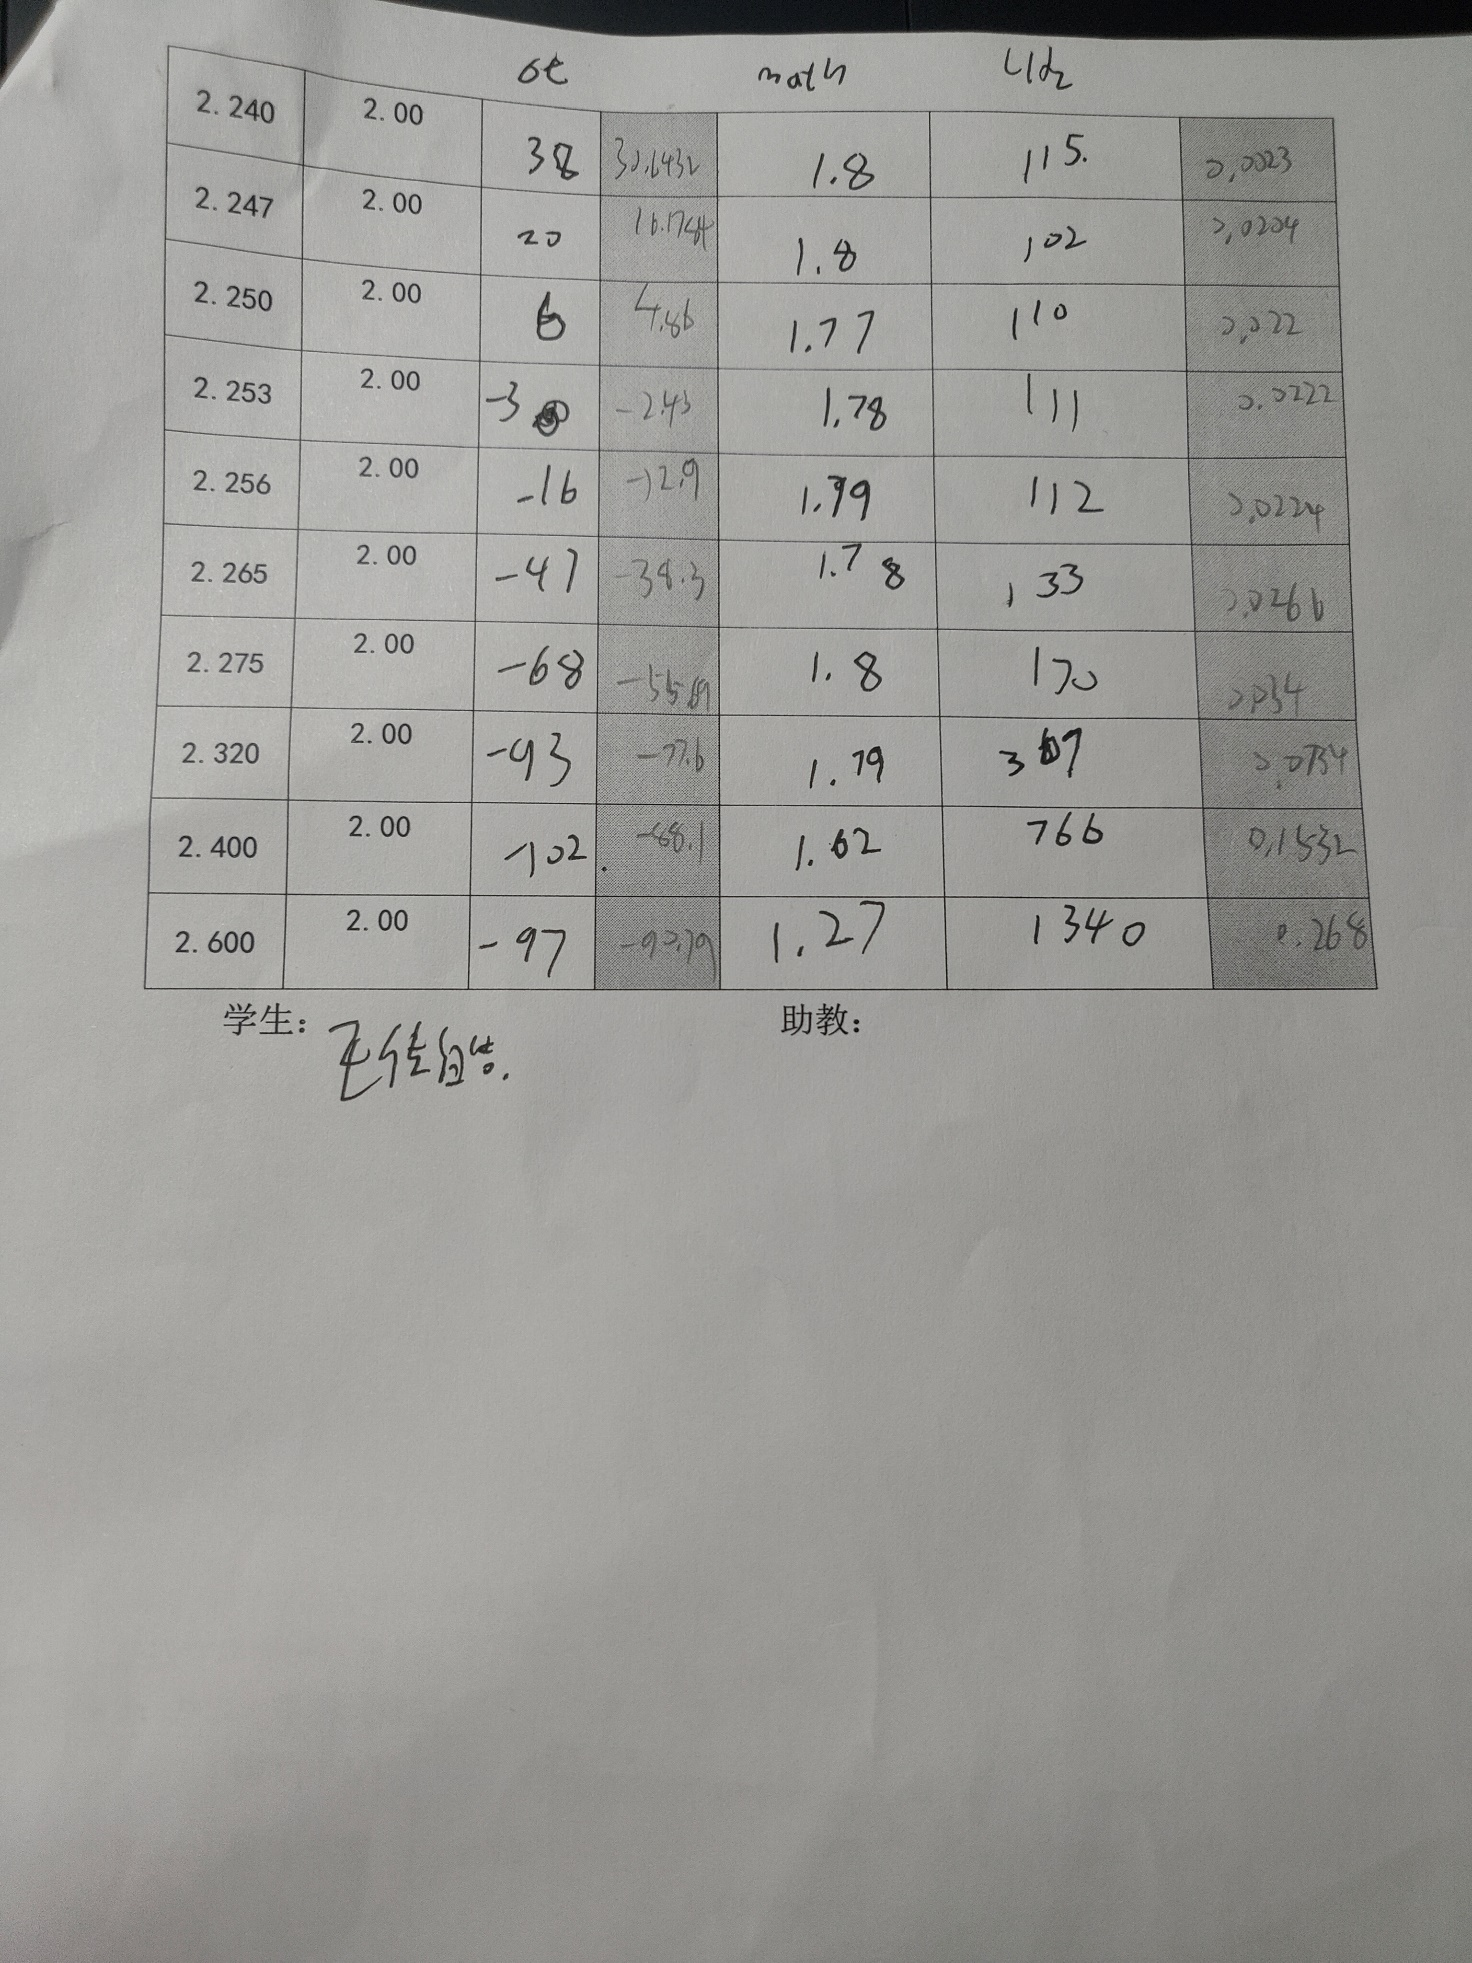 δt math Ud2
2.240 2.00 38 30.6432 1.8 115. 0,0023
2.247 2.00 20 1.8 102 0,0204
2.250 2.00 6 4.86 1.77 110 0,022
2.253 2.00 -3 -2.43 1.78 111 0.0222
2.256 2.00 -16 -12.9 1.79 112 0,0224
2.265 2.00 -47 -38.3 1.78 133 0.0266
2.275 2.00 -68 1.8 170 0.034
2.320 2.00 -93 -77.6 1.79 367 0.0734
2.400 2.00 -102. -88.1 1.62 766 0.1532
2.600 2.00 -97 -90.79 1.27 1340 0.268
学生: 助教: